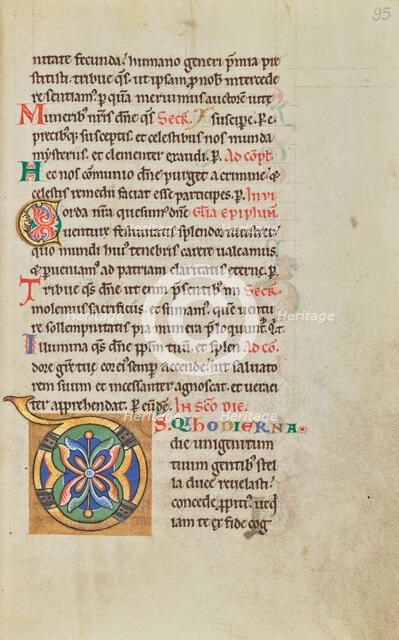 95
nitate fecunda? humano generi p̄mia pre
stitisti. tribue q̄s. ut ipsam p̄ nob intercede
re sentiam⁹. p quā meruimus auctorē vite
Munerib n̄ris dn̄e q̄s Secr̄. suscipe. p̄c. e
precib⁊q; susceptis. et celestibus nos munda
mysteriis. et clementer exaudi. p. Ad cōpl.
Hec nos cōmunio dn̄e purget a crimine. ⁊
celestis remedii faciat esse participes. p. In vi
Corda n̄ra quesum⁹ dn̄e gl̄ia epiphan̄.
venture festiuitatis splendor illustret.
quo mundi hui⁹ tenebris carere valeamus.
⁊ pueniam⁹ ad patriam claritatis eterne. p.
Tribue q̄s dn̄e ut eum p̄sentib im Secr̄.
molem⁹ sacrificiis. et sumam⁹. que ventu
re sollempnitatis pia munera p̄loquunt̄.
Illumina q̄s dn̄e ppl̄m tuū. et splen Ad cō.
dore gr̄e tue cor ei⁹ semp accende. ut saluato
rem suum et incessanter agnoscat. et verac
ter apprehendat. p. eundē. In sc̄o die.
DS. QI hodierna
die unigenitum
tuum gentib stel
la duce reuelasti.
concede ppiti⁹. ut q
iam te ex fide cog
heritage
Heritage
Heritage